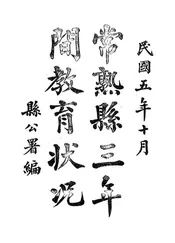 民國五年十月
常熟縣三年
間教育狀况
縣公署編